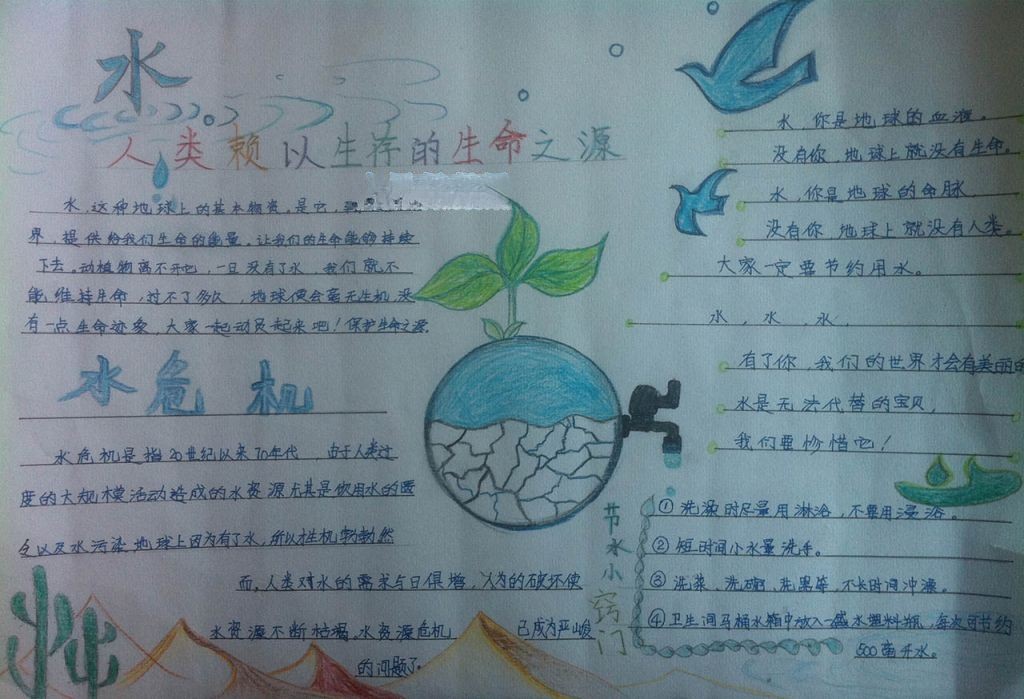 水
人类赖以生存的生命之源
水,这种地球上的基本物资。是它,
界,提供给我们生命的能量。让我们的生命能够持续
下去。动植物离不开它,一旦没有了水,我们就不
能维持生命,过不了多久,地球便会毫无生机,没
有一点生命迹象,大家一起动员起来吧!保护生命之源
水危机
水危机是指20世纪以来70年代,由于人类过
度的大规模活动造成的水资源尤其是饮用水的匮
乏以及水污染,地球上因为有了水,所以生机勃勃然
而,人类对水的需求与日俱增,人为的破坏使
水资源不断枯竭,水资源危机 已成为严峻
的问题了。
水,你是地球的血液。
没有你,地球上就没有生命。
水,你是地球的命脉
没有你,地球上就没有人类。
大家一定要节约用水。
水,水,水,
有了你,我们的世界才会有美丽的
水是无法代替的宝贝,
我们要珍惜它!
节水小窍门
①洗澡时尽量用淋浴,不要用浸浴。
②短时间小水量洗手。
③洗菜、洗碗、洗果等,不长时间冲漂。
④卫生间马桶水箱中放入一盛水塑料瓶,每次可节约
500毫升水。